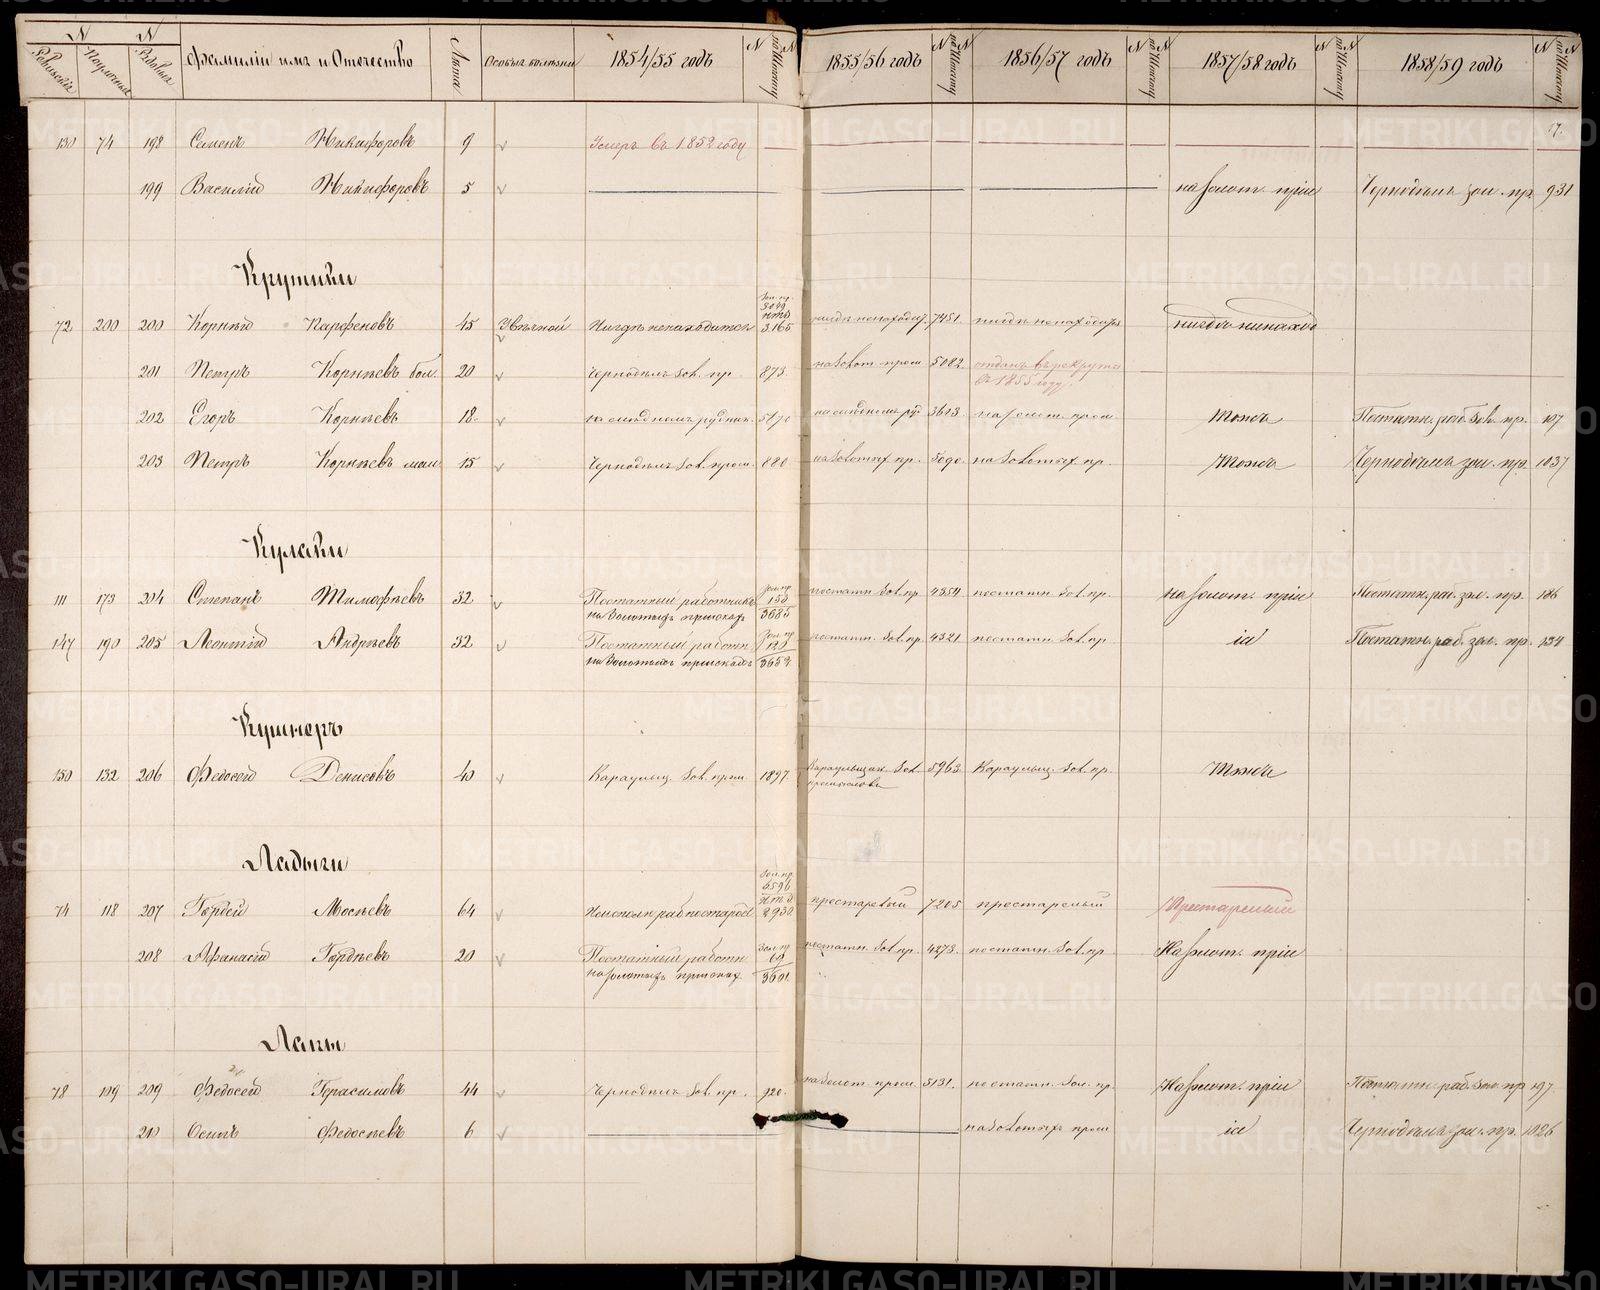 № № Фамилiи имъ и Отчество Лѣта Особыя болѣзни 1854/55 годъ № по Штату № 1855/56 годъ № по Штату № 1856/57 годъ № по Штату № 1857/58 годъ № по Штату № 1858/59 годъ № по Штату №
130 74 198 Семенъ Никифоровъ 9 Умеръ въ 1852 году
199 Василiй Никифоровъ 5 на золот. прiис Чернодѣлъ зол. пр. 931
Крутики
72 200 200 Корнѣй Парфеновъ 45 Увѣчной Нигдѣ ненаходится 3165 нигдѣ ненаходит. 7451 нигдѣ ненаходится нигдѣ нинаход
201 Петръ Корнѣевъ бол. 20 Чернодѣлъ Зол. пр. 873 на Золот. пром 5082 отданъ въ рекруты въ 1855 году.
202 Егоръ Корнѣевъ 18 на мѣдномъ рудник. 5170 на мѣдномъ руд. 3613 на золот. пром. Тоже Постатн. раб. Зол. пр. 107
203 Петръ Корнѣевъ мал. 15 Чернодѣлъ Зол. пром. 880 на Золотых пр. 5090 на Золотых пр. Тоже Чернодѣлъ зол. пр. 1037
Кулаки
111 173 204 Степанъ Тимофѣевъ 32 Постатный работникъ на Золотыхъ прiискахъ 153 3685 постатн. Зол. пр. 4354 постатн. Зол. пр. на золот. прiис Постатн. раб. зол. пр. 186
147 190 205 Леонтiй Андрѣевъ 32 Постатный работн. на Золотыхъ прiискахъ 123 3652 постатн. Зол. пр. 4321 постатн. Зол. пр. id Постатн. раб. зол. пр. 134
Кушнеръ
150 132 206 Федосей Денисовъ 40 Караульщ. Зол. пром. 1897 Караульщик. Зол. промысловъ 5963 Караульщ. Зол. пр. Тоже
Ладыги
74 118 207 Гордей Мосѣевъ 64 Неисполн. раб. по старос. Зол. пр. 6596 2930 престарелый 7205 престарелый Престарелый
208 Афанасiй Гордѣевъ 20 Постатный работн. на золотыхъ прiискахъ 3601 постатн. Зол. пр. 4273 постатн. Зол. пр. На золот. прiис
Лапы
78 109 209 Федосей Герасимовъ 44 Чернодѣлъ Зол. пр. 920 на Золот. пром. 5131 постатн. Зол. пр. На золот. прiис Постатн. раб. Зол. пр. 197
210 Осипъ Федосѣевъ 6 на Золотыхъ пром id Чернодѣлъ зол. пр. 1026